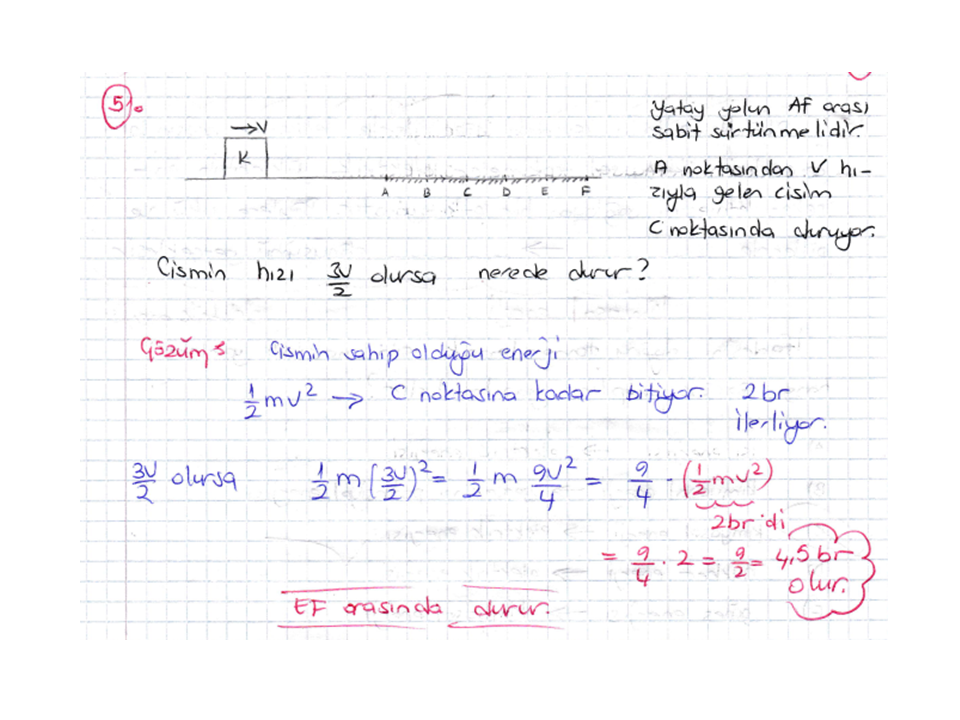 5.
→V
K
A B C D E F
Yatay yolun AF arası
sabit sürtünmelidir.
A noktasından V hı-
zıyla gelen cisim
C noktasında duruyor.
Cismin hızı 3V/2 olursa nerede durur?
Çözüm: Cismin sahip olduğu enerji
1/2 mv² → C noktasına kadar bitiyor. 2br
ilerliyor.
3V/2 olursa 1/2 m (3V/2)² = 1/2 m 9V²/4 = 9/4 · (1/2 mv²)
2br'di
= 9/4 · 2 = 9/2 = 4,5 br
olur.
EF arasında durur.